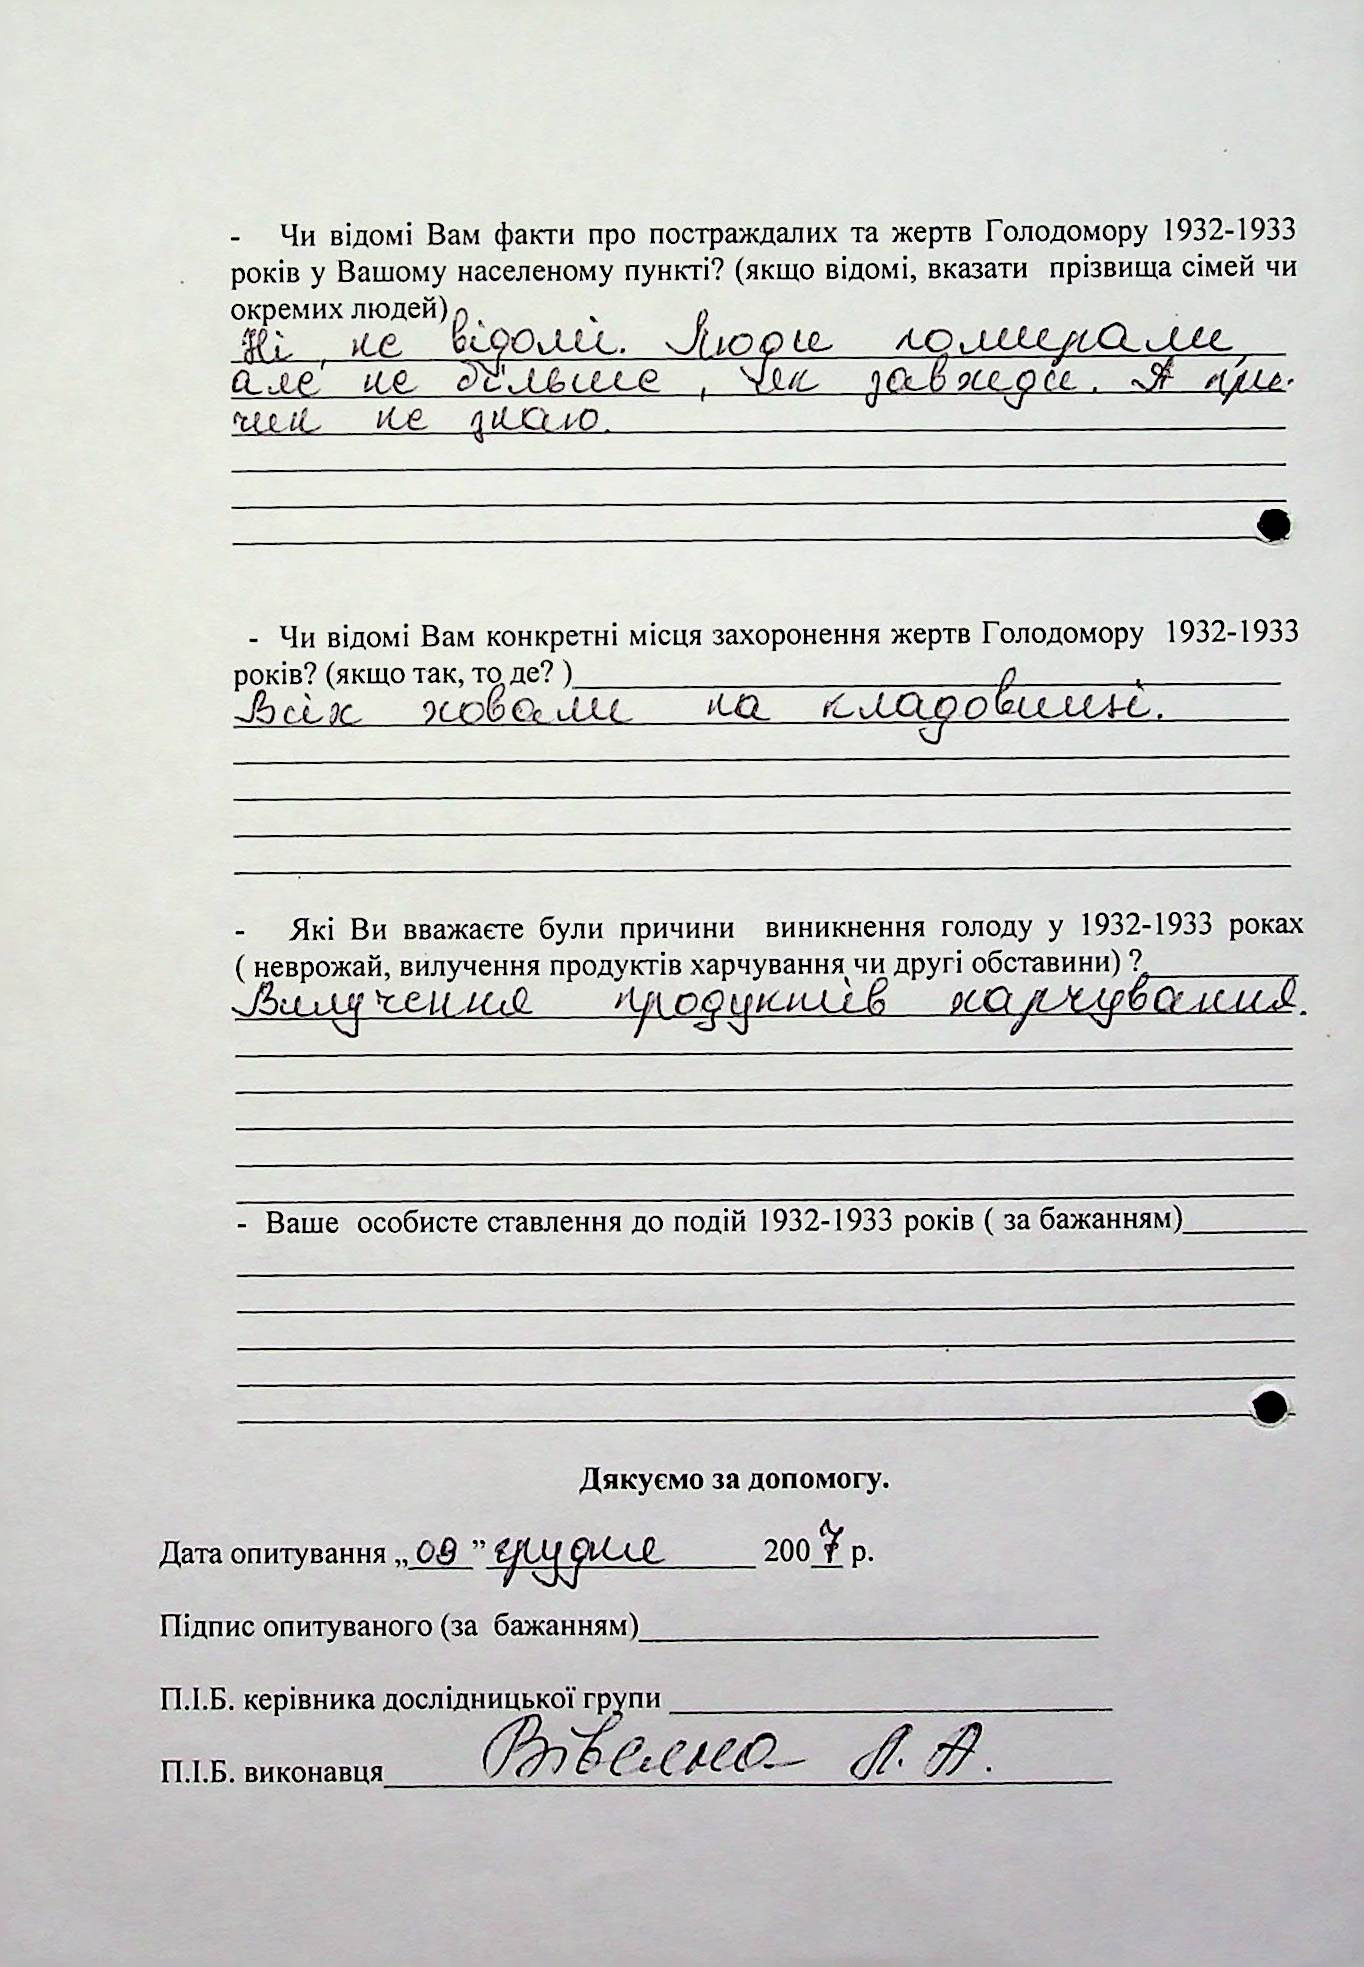 - Чи відомі Вам факти про постраждалих та жертв Голодомору 1932-1933
років у Вашому населеному пункті? (якщо відомі, вказати прізвища сімей чи
окремих людей)
Ні, не відомі. Люди помирали,
але не більше, як завжди. А при-
чин не знаю.
- Чи відомі Вам конкретні місця захоронення жертв Голодомору 1932-1933
років? (якщо так, то де? )
Всіх ховали на кладовищі.
- Які Ви вважаєте були причини виникнення голоду у 1932-1933 роках
( неврожай, вилучення продуктів харчування чи другі обставини) ?
Вилучення продуктів харчування.
- Ваше особисте ставлення до подій 1932-1933 років ( за бажанням)
Дякуємо за допомогу.
Дата опитування „09" грудня 2007 р.
Підпис опитуваного (за бажанням)
П.І.Б. керівника дослідницької групи
П.І.Б. виконавця Л. А.